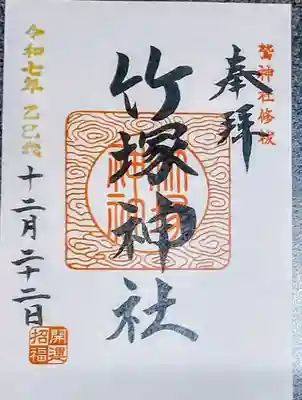 鷲神社修祓
奉拝
竹塚神社
令和七年 乙巳歳
十二月二十二日
開運
招福